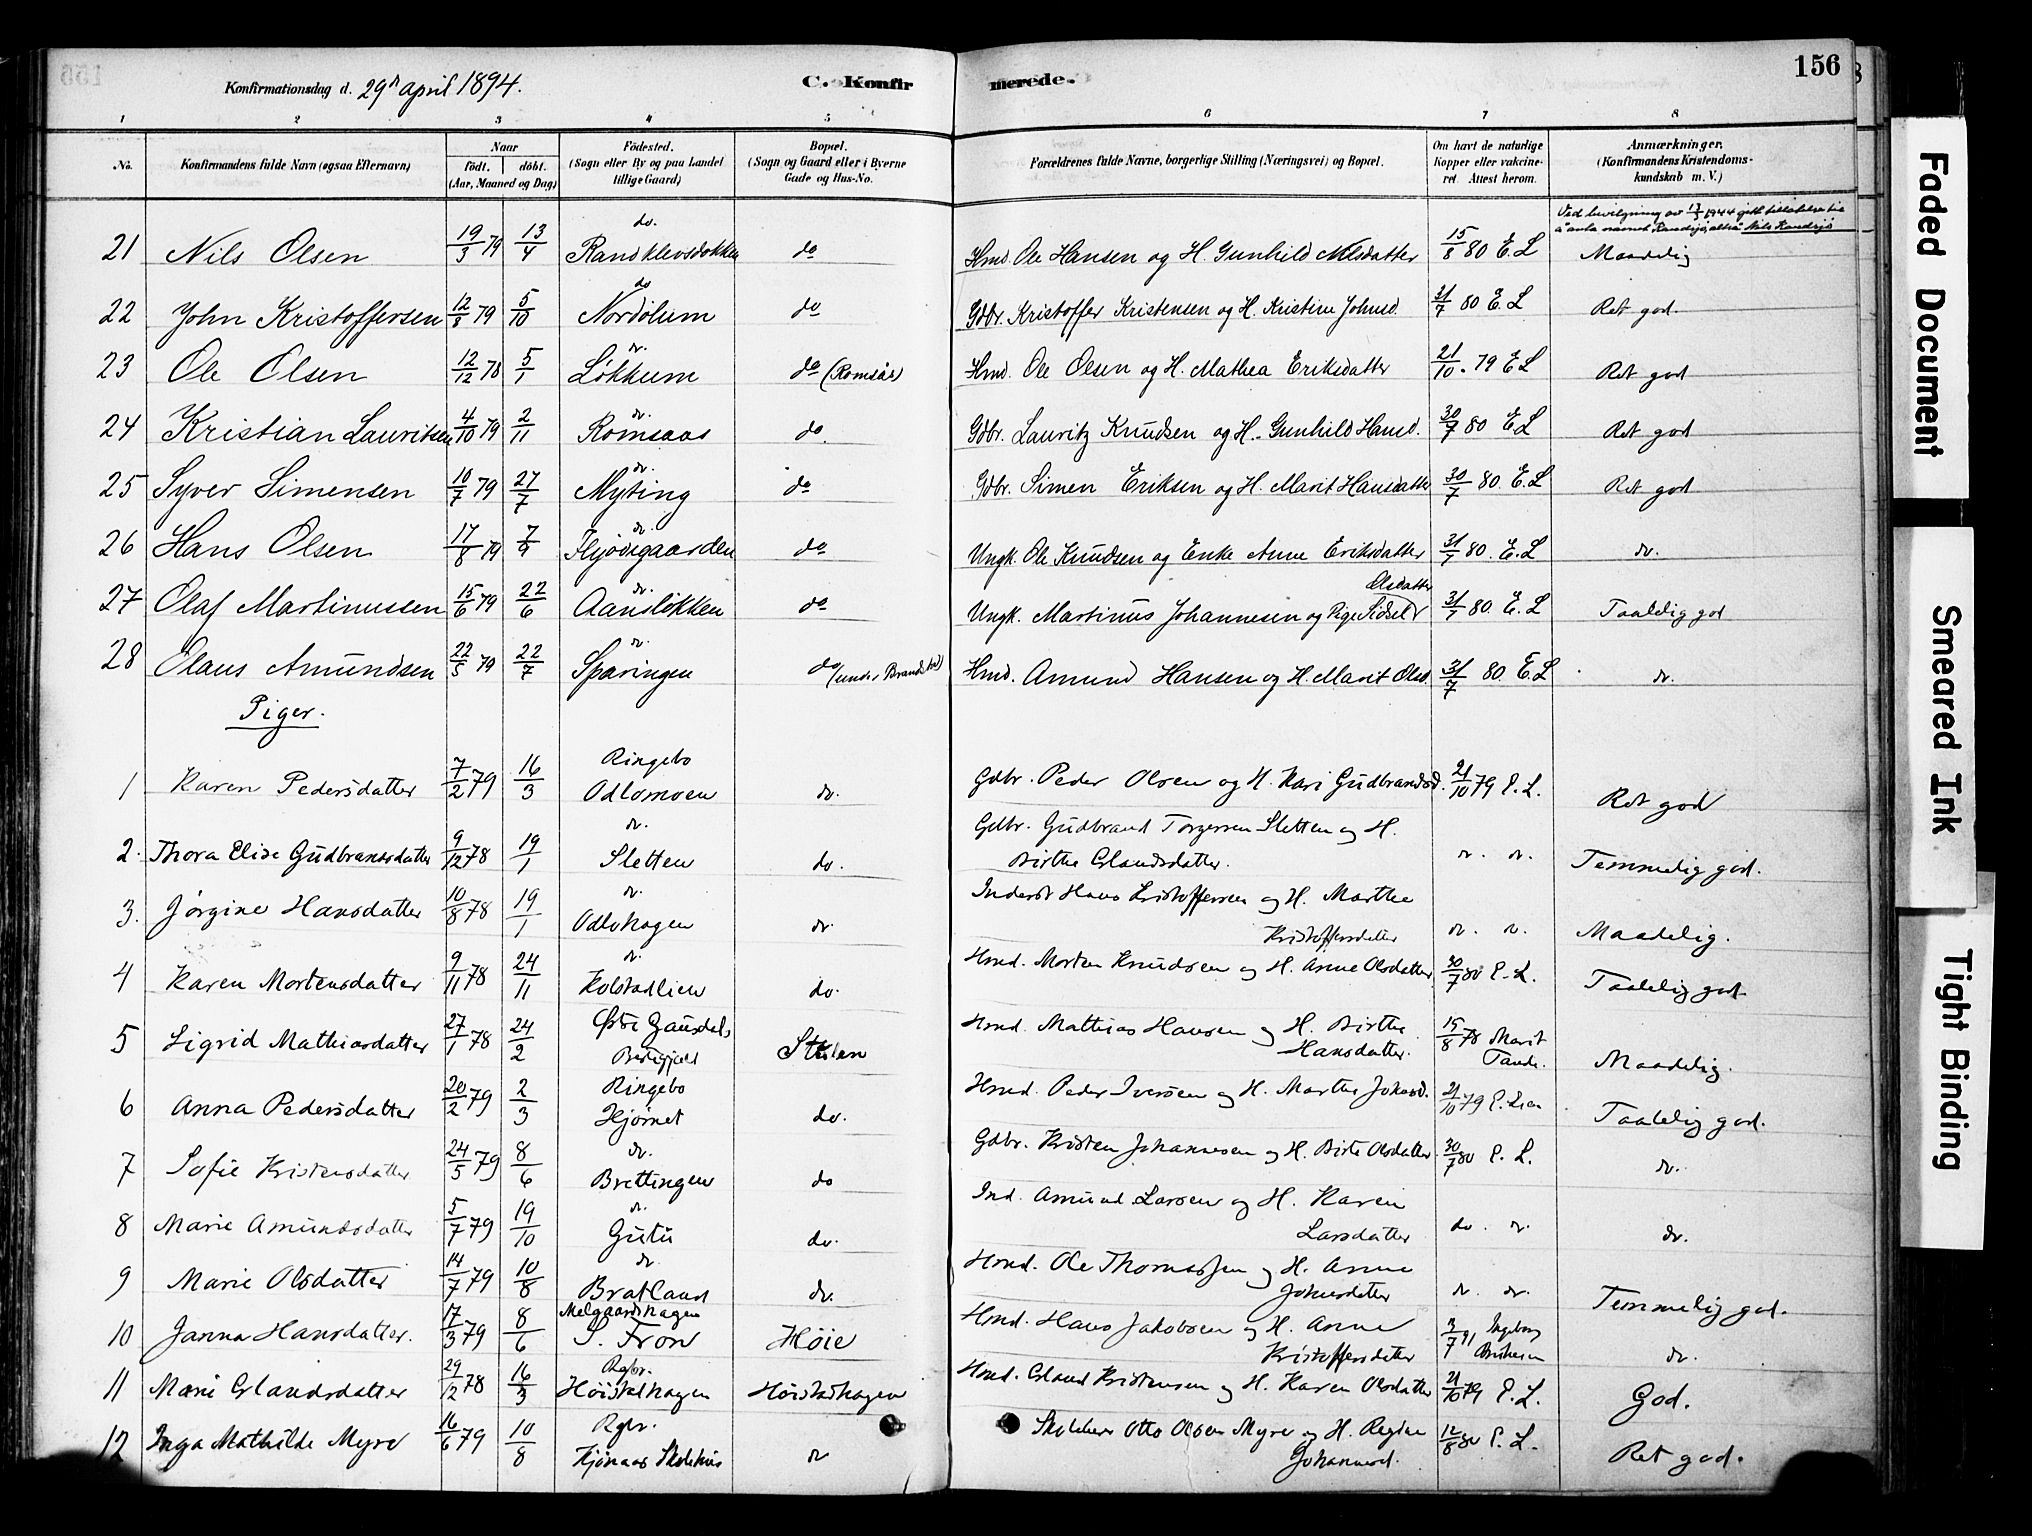 156
Konfirmationsdag d. 29de april 1894.
C. Konfirmerede.
1 2 3 4 5 6 7 8
No. Konfirmandens fulde Navn (ogsaa Efternavn) Naar født. døbt. (Aar, Maaned og Dag) Fødested. (Sogn eller By og paa Landet tillige Gaard) Bopæl. (Sogn og Gaard eller i Byerne Gade og Hus-No. Forældrenes fulde Navne, borgerlige Stilling (Næringsvei) og Bopæl. Om havt de naturlige Kopper eller vakcineret. Attest herom. Anmærkninger. (Konfirmandens Kristendomskundskab m. V.)
Ved bevilgning av 17/3 1944 gitt tillatelse til å anta navnet Randsjø, altså Nils Randsjø
21 Nils Olsen 19/3 79 13/4 do. Randklevsdokken do Hmd. Ole Hansen og H. Gunhild Nilsdatter 15/8 80 E. L Maadelig
22 John Kristoffersen 12/8 79 5/10 do Nordølum do Gdbr. Kristoffer Kristensen og H. Kristine Johnsd. 31/7 80 E. L Ret god.
23 Ole Olsen 12/12 78 5/1 do. Løkkum do (Romsås) Hmd. Ole Olsen og H. Mathea Eriksdatter 21/10 79 E L Ret god
24 Kristian Lauritsen 4/10 79 2/11 do. Romsaas do. Gdbr. Lauritz Knudsen og H. Gunhild Hansd. 30/7 80 E L Ret god
25 Syver Simensen 10/7 79 27/7 do. Myting do Gdbr. Simen Eriksen og H. Marit Hansdatter 30/7 80. E. L Ret god
26 Hans Olsen 17/8 79 7/9 do. Flyodigaarden do Ungk. Ole Knudsen og Enke Anne Eriksdatter 31/7 80. E. L do.
27 Olaf Martinussen 15/6 79 22/6 do. Aansløkken do Ungk. Martinus Johannesen og Pige Sidsel Olsdatter 31/7 80. E. L Taalelig god
28 Olaus Amundsen 22/5 79 22/7 do Sparingen do (under Brandstad) Hmd. Amund Hansen og H. Marit Olsd. 31/7 80. E. L do.
Piger.
1 Karen Pedersdatter 7/2 79 16/3 Ringebo Odlomoen do. Gdbr. Peder Olsen og H. Kari Gudbrandsd. 21/10 79 E. L. Ret god
2. Thora Elise Gudbrandsdatter 9/12 78 19/1 do. Sletten do. Gdbr. Gudbrand Torgersen Sletten og H. Birthe Erlandsdatter. do. do. Temmelig god.
3. Jørgine Hansdatter 10/8 78 19/1 do. Odlohagen do. Inderst Hans Kristoffersen og H. Marthe Kristoffersdatter do. do. Maadelig.
4 Karen Mortensdatter 9/11 78 24/11 do. Kolstadlien do. Hmd. Morten Knudsen og H. Anne Olsdatter 30/7 80 E. L. Taalelig god
5 Sigrid Mathiasdatter 27/1 78 24/2 Østre Gausdal Hmd. Mathias Hansen og H. Birthe Hansdatter. 15/8 78 Marit Tande. Maadelig.
6 Anna Pedersdatter 20/2 79 2/3 Ringebo Hjørnet do. Hmd. Peder Iversen og H. Marthe Johansd. 21/10 79 E. Lien Taalelig god.
7 Sofie Kristensdatter 24/5 79 8/6 do. Brettingen do Gdbr. Kristen Johannesen og H. Birte Olsdatter. 30/7 80 E. L. do.
8 Marie Amundsdatter 5/7 79 19/10 do. Gutu do. Ind. Amund Larsen og H. Karen Larsdatter do. do. do.
9 Marie Olsdatter 14/7 79 10/8 do. Bratland do. Hmd. Ole Thomassen og H. Anne Johnsdatter do. do. Temmelig god.
10 Janna Hansdatter. 17/3 79 8/6 Melgaardshagen S. Fron Høie Hmd. Hans Jakobsen og H. Anne Kristoffersdatter 3/7 91 Ingeborg do.
11 Mari Erlandsdatter 29/12 78 16/3 Rgbr. Høistadhagen Høistadhagen Hmd. Erland Kristensen og H. Karen Olsdatter 21/10 79 E. L. God.
12 Inga Mathilde Myre 16/6 79 10/8 Rgbr. Kjønaas Skolehus do Skolelærer Otto Olsen Myre og H. Regine Johannesd. 12/8 80 E. L. Ret god.
Faded Document
Smeared Ink
Tight Binding